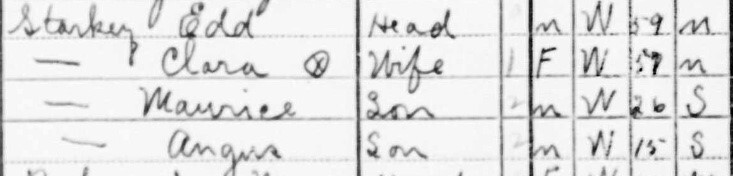 Starkey Edd Head M W 59 M
— Clara ⊗ Wife 1 F W 57 M
— Maurice Son 2 M W 26 S
— Angus Son 2 M W 15 S